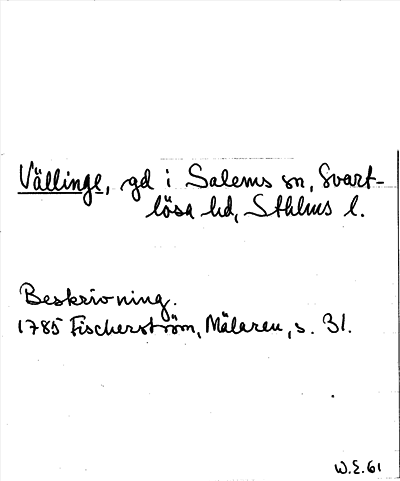 Vällinge, gd i Salems sn, Svart-
lösa hd, Sthlms l.
Beskrivning.
1785 Fischerström, Mälaren, s. 31.
W.E. 61